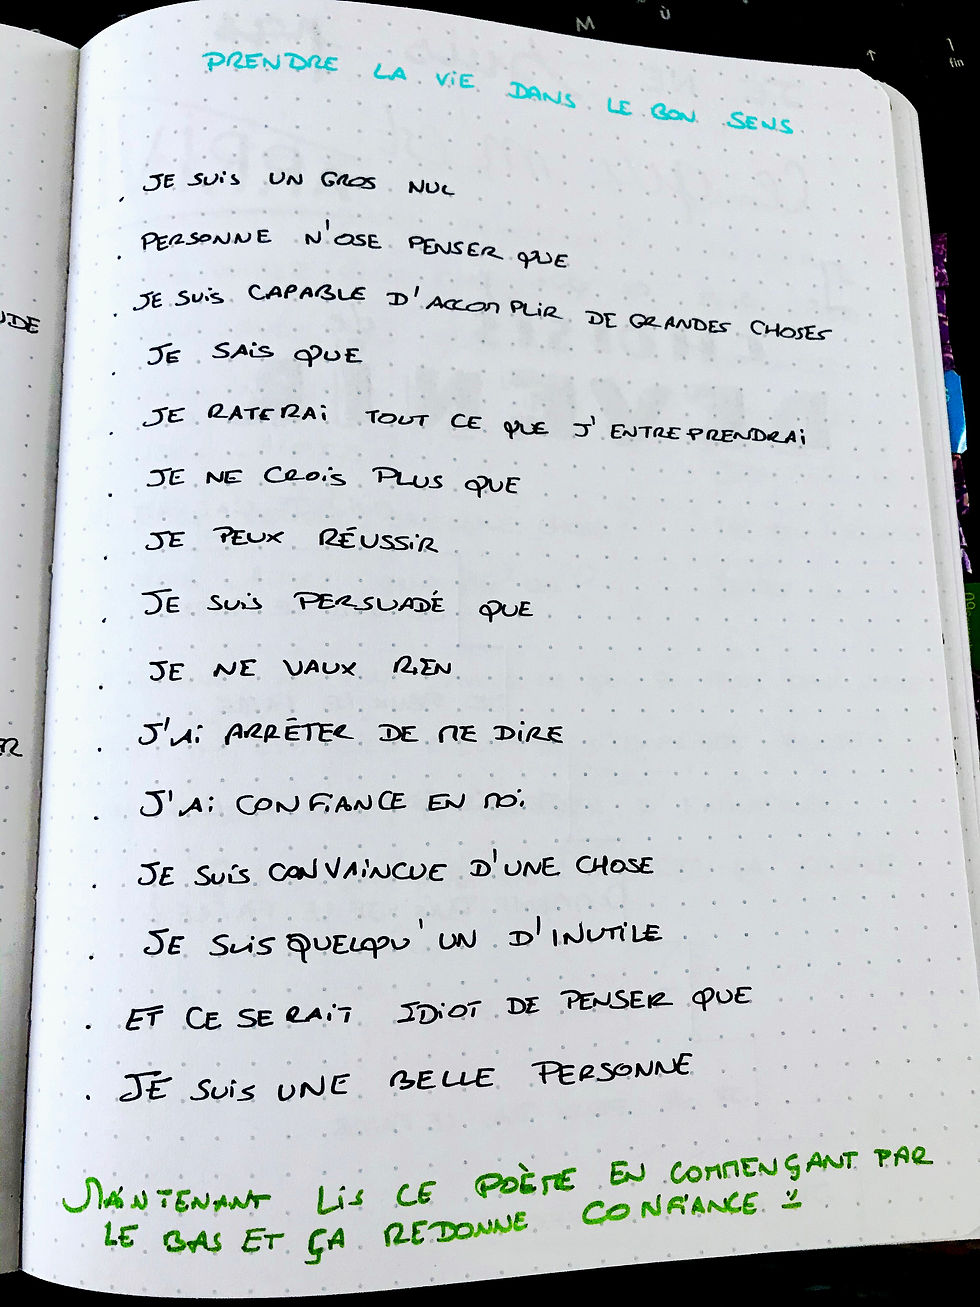 PRENDRE LA ViE DANS LE BON SENS
. JE SUiS UN GROS NUL
. PERSONNE N'OSE PENSER QUE
. JE SUiS CAPABLE D'ACCOMPLIR DE GRANDES CHOSES
. JE SAiS QUE
. JE RATERAi TOUT CE QUE J'ENTREPRENDRAi
. JE NE CROiS PLUS QUE
. JE PEUX RÉUSSiR
. JE SUiS PERSUADÉ QUE
. JE NE VAUX RiEN
. J'Ai ARRÊTER DE ME DiRE
. J'Ai CONFiANCE EN MOi
. JE SUiS CONVAiNCUE D'UNE CHOSE
. JE SUiS QUELQU'UN D'INUTiLE
. ET CE SERAiT IDiOT DE PENSER QUE
. JE SUiS UNE BELLE PERSONNE
MAiNTENANT LiS CE POÈME EN COMMENÇANT PAR
LE BAS ET ÇA REDONNE CONFiANCE
UDE
M
ù
fin